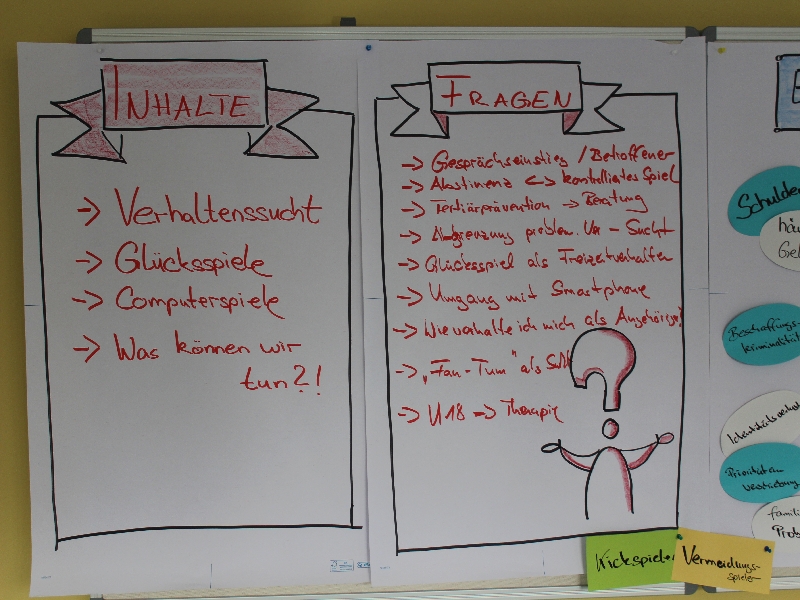 INHALTE
-> Verhaltenssucht
-> Glücksspiele
-> Computerspiele
-> Was können wir
tun?!
FRAGEN
-> Gesprächseinstieg / Betroffener
-> Abstinenz <-> kontrolliertes Spiel
-> Tertiärprävention -> Beratung
-> Abgrenzung problem. Vh - Sucht
-> Glücksspiel als Freizeitverhalten
-> Umgang mit Smartphone
-> Wie verhalte ich mich als Angehörige?
-> „Fan-Tum" als
-> U18 -> Therapie
Kickspieler
Vermeidungs-
spieler
Schulden
Beschaffungs-
kriminalität
Prioritäten